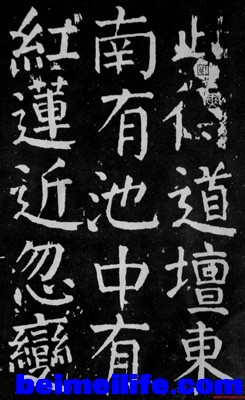 此得道壇東
南有池中有
紅蓮近忽變
belmeilife.com